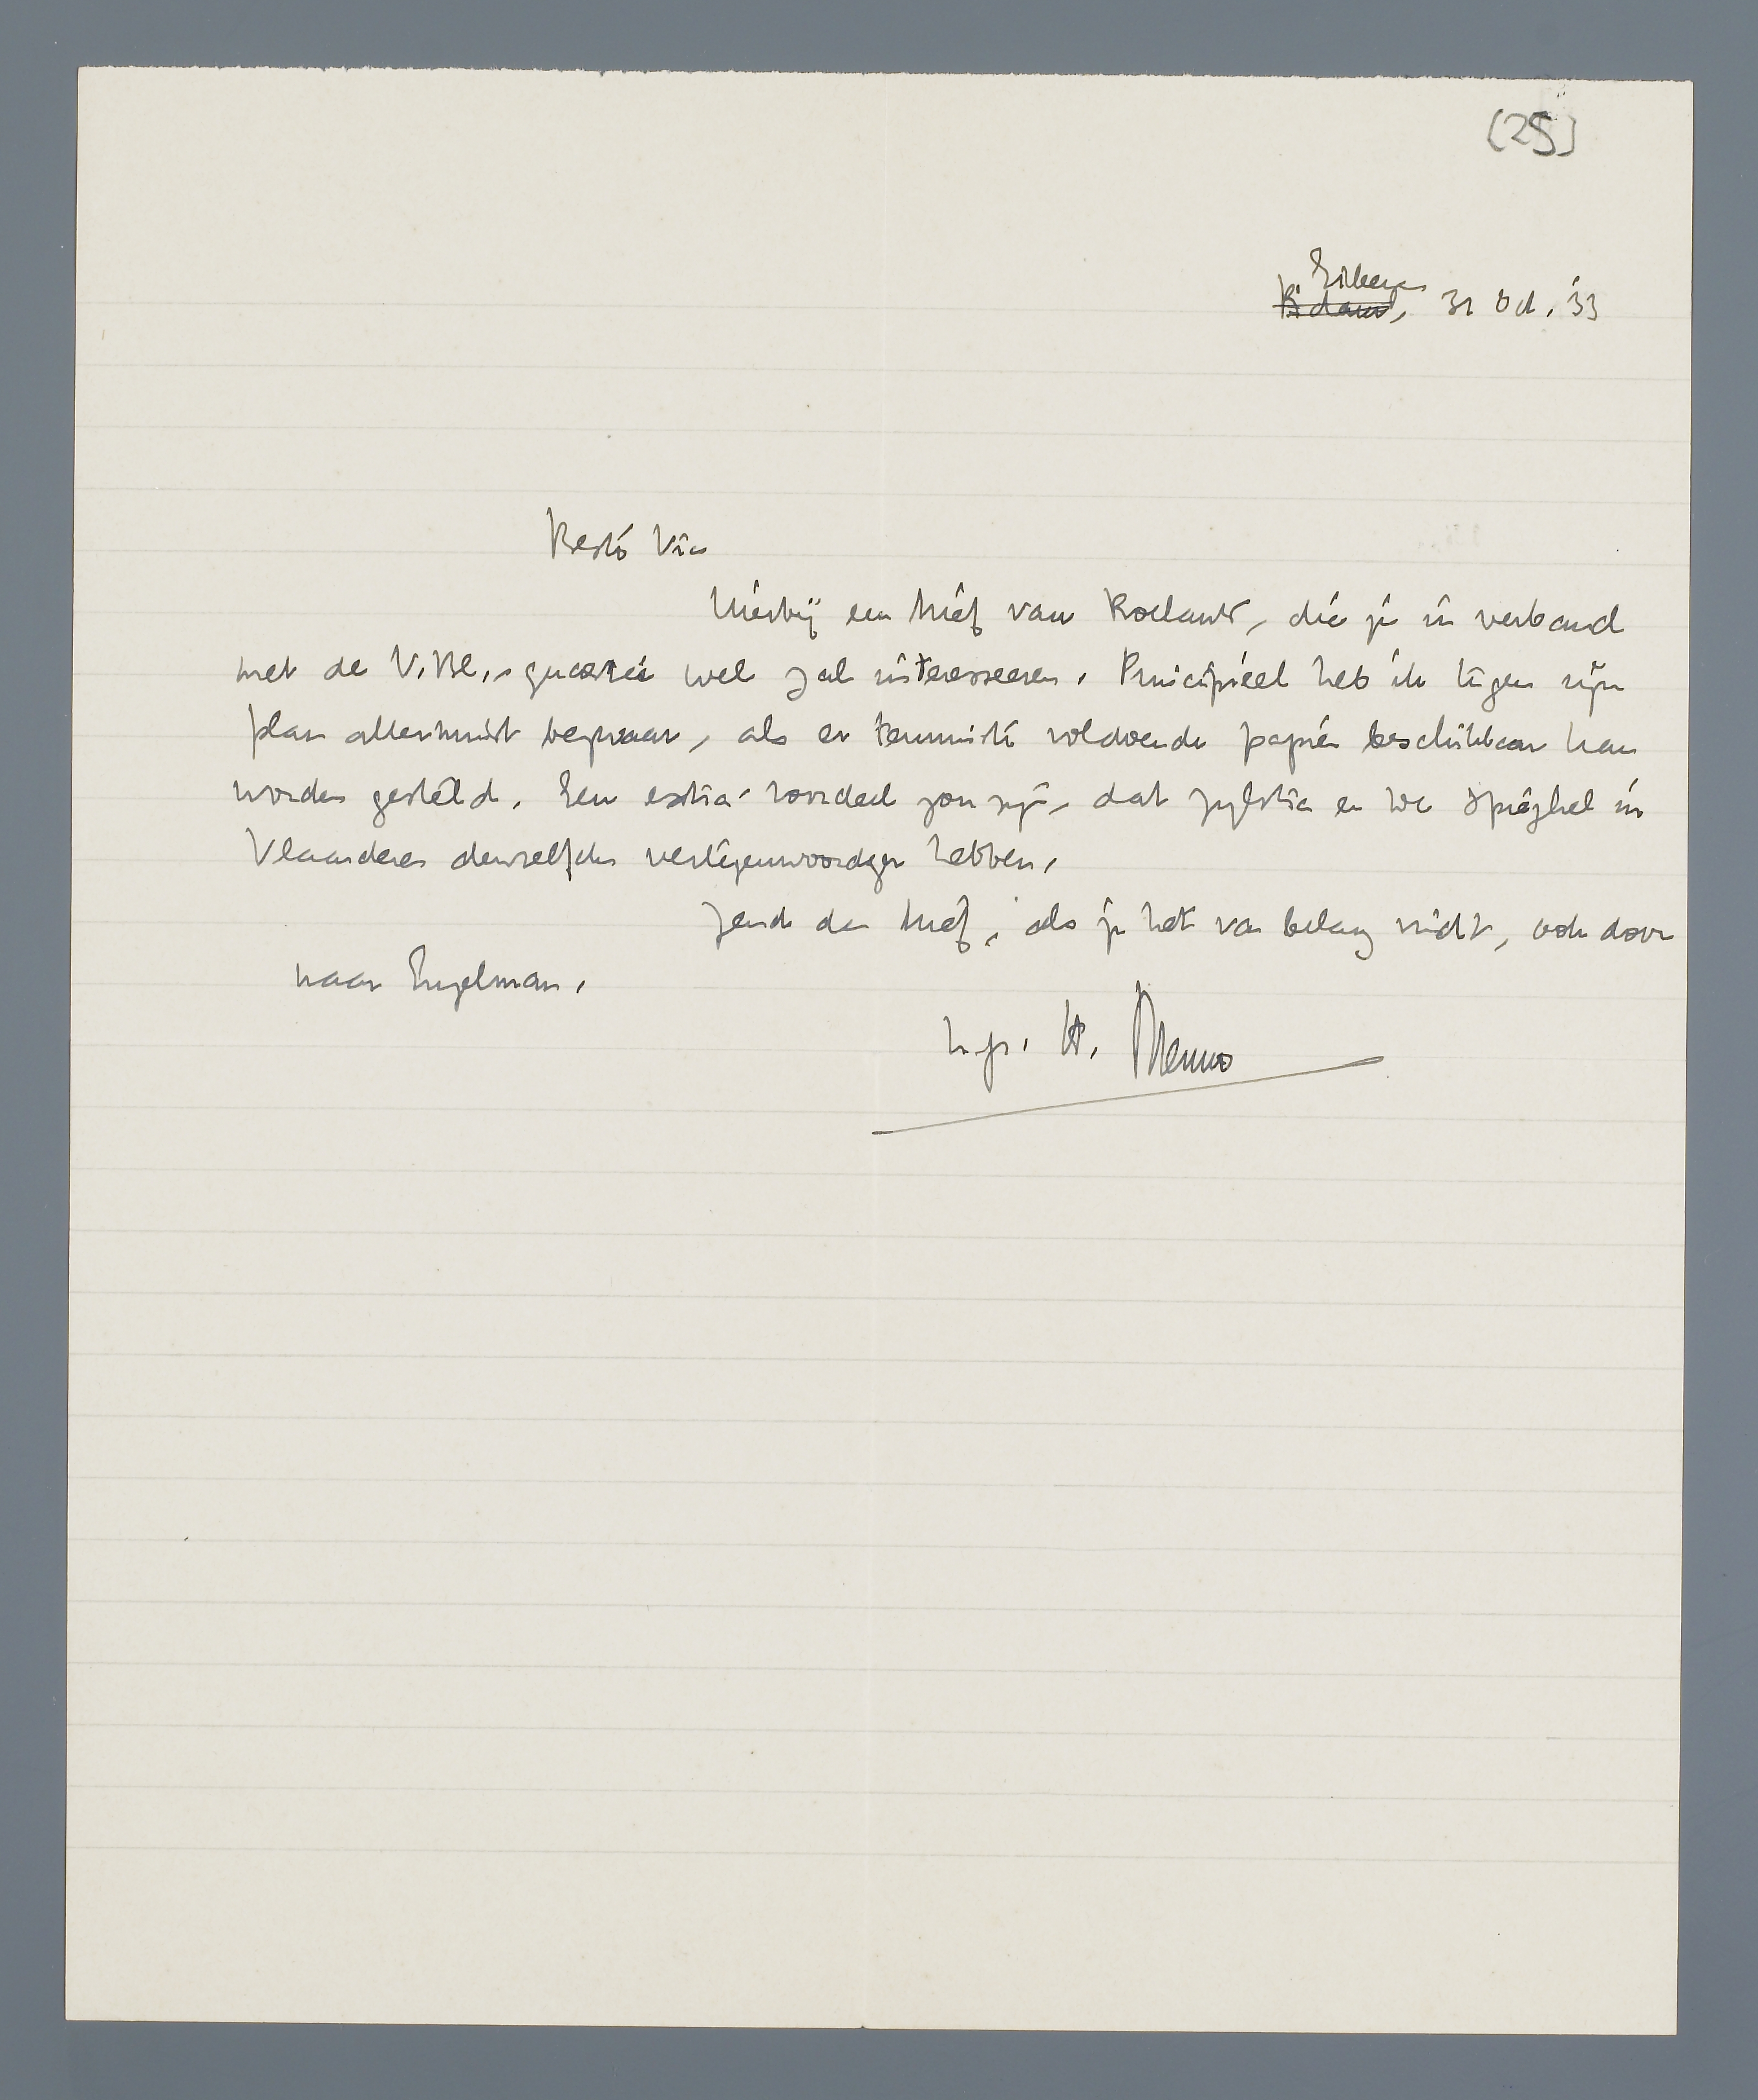 [25]
Eibergen
R'dam, 31 Oct. '33
Beste Vic
Hierbij een brief van Roelants, die je in verband
met de V.Bl.-quaestie wel zal interesseeren. Principieel heb ik tegen zijn
plan allerminst bezwaar, als er tenminste voldoende papier beschikbaar kan
worden gesteld. Een extra-voordeel zou zijn, dat Zijlstra en De Spieghel in
Vlaanderen denzelfden vertegenwoordiger hebben.
Zend den brief, als je het van belang vindt, ook door
naar Engelman.
h. gr. tt. Menno